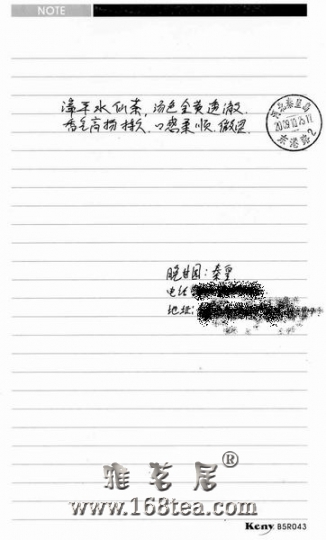 NOTE
漳平水仙茶，汤色金黄透澈，
香气高扬持久，口感柔顺，微涩
河北秦皇岛
2009.10.25.17
2
晓甘园：秦皇
电话
地址：
雅茗居®
www.168tea.com
Keny B5R043